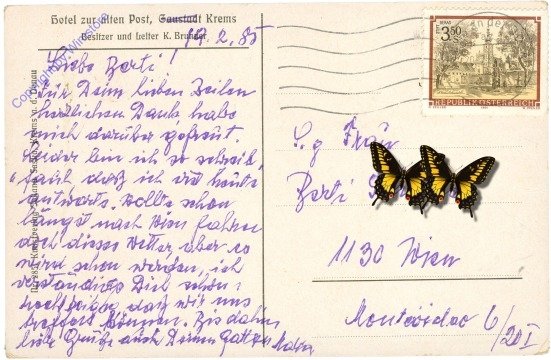 Hotel zur alten Post, Gaustadt Krems
Besitzer und Leiter K. Brunner
19. 2. 85
Liebe Berti!
Für Deine lieben Zeilen
herzlichen Dank, habe
mich darüber gefreut.
Leider bin ich so schreib-
faul, daß ich erst heute
antworte. Wollte schon
längst nach Wien fahren
doch dieses Wetter, aber es
wird schon werden, ich
verständige Dich schon
rechtzeitig, daß wir uns
treffen können. Bis dahin
liebe Grüße auch Deinem Gatten
Copyright by Winstore
3.50
REPUBLIK ÖSTERREICH
S. g. Frau
Berti
1130 Wien
Montevideo 6/20 I